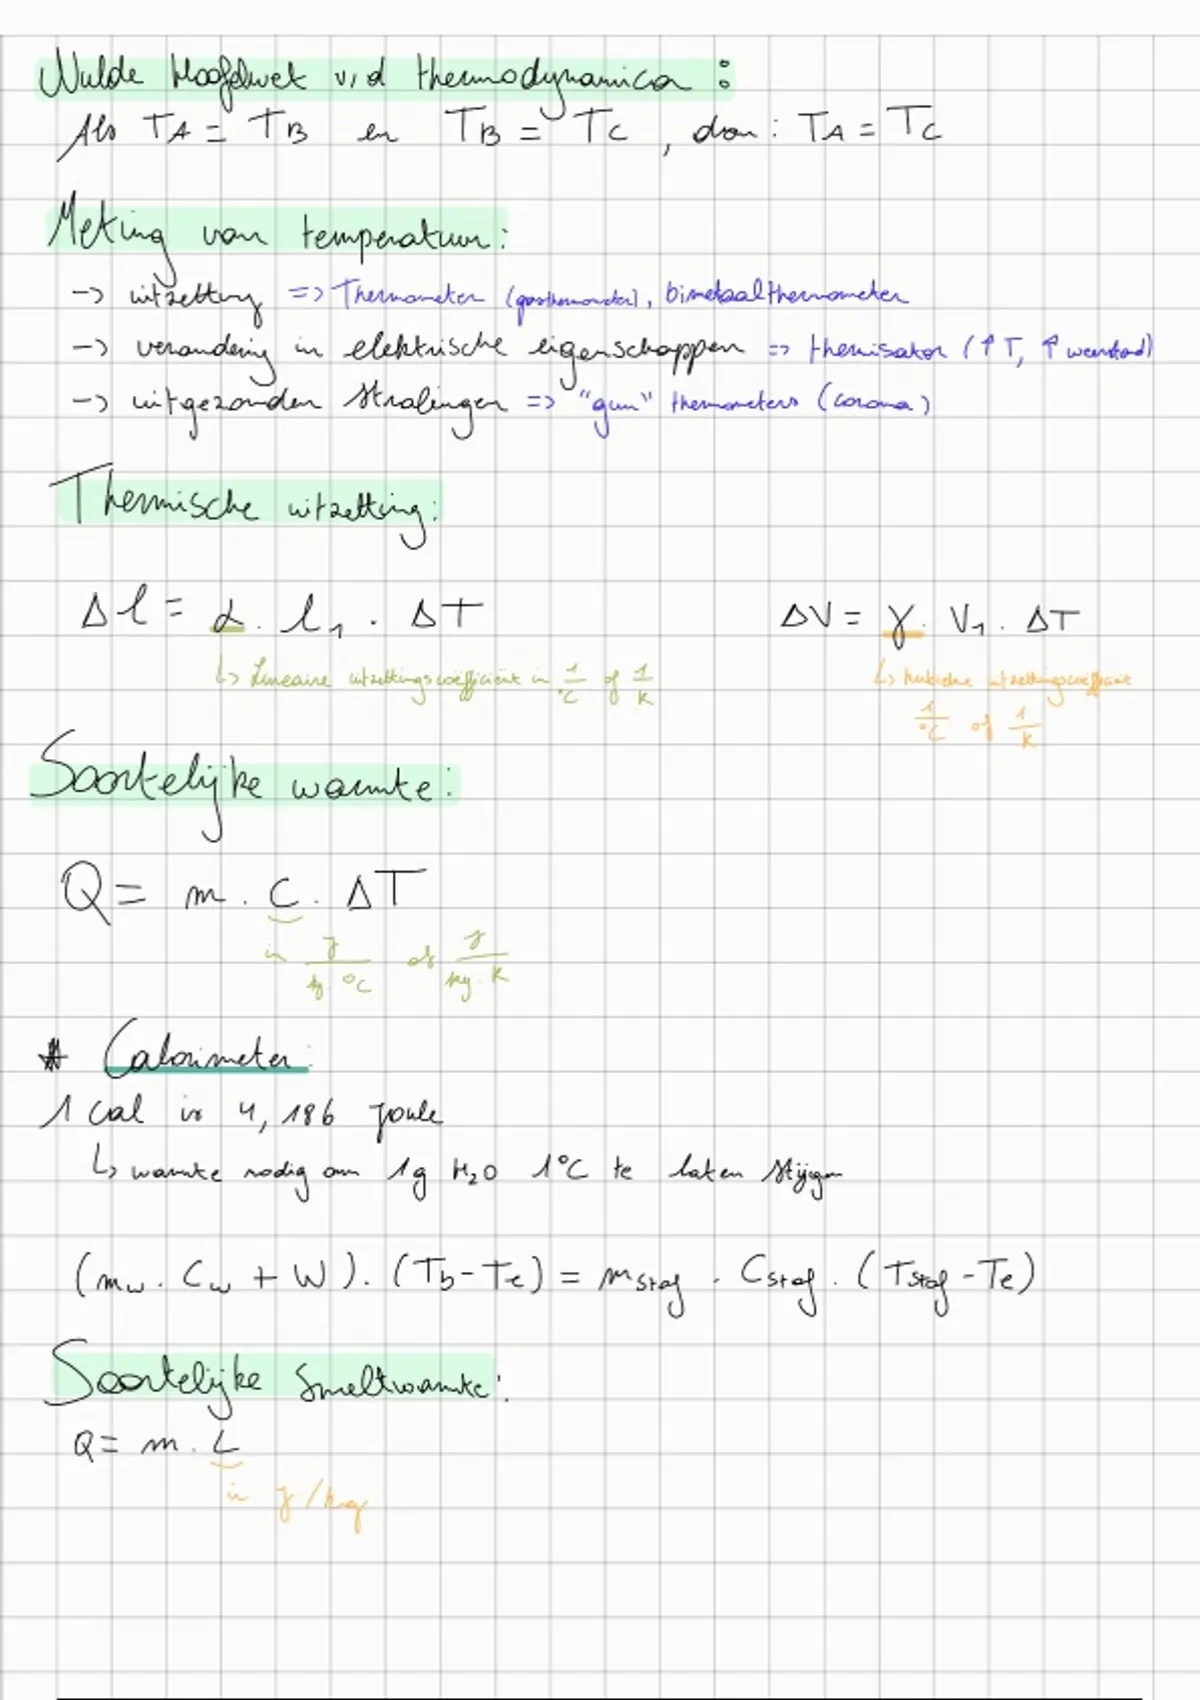 Nulde Hoofdwet v/d thermodynamica:
Als TA = TB en TB = TC, dan: TA = TC
Meting van temperatuur:
-> uitzetting => Thermometer (gasthermometer), bimetaalthermometer
-> verandering in elektrische eigenschappen => themisator (↑ T, ↑ weerstand)
-> uitgezonden stralingen => "gun" thermometers (corona)
Thermische uitzetting:
Δl = α . l₁ . ΔT
↳ Lineaire uitzettingscoëfficiënt in 1/°C of 1/K
ΔV = γ . V₁ . ΔT
↳ kubieke uitzettingscoëfficient
1/°C of 1/K
Soortelijke warmte:
Q = m . c . ΔT
in J/kg.°C of J/kg.K
* Calorimeter:
1 cal is 4,186 Joule
↳ warmte nodig om 1g H₂O 1°C te laten stijgen
(mw . Cw + W) . (Tb - Te) = mstof . Cstof . (Tstof - Te)
Soortelijke smeltwarmte:
Q = m . L
in J/kg